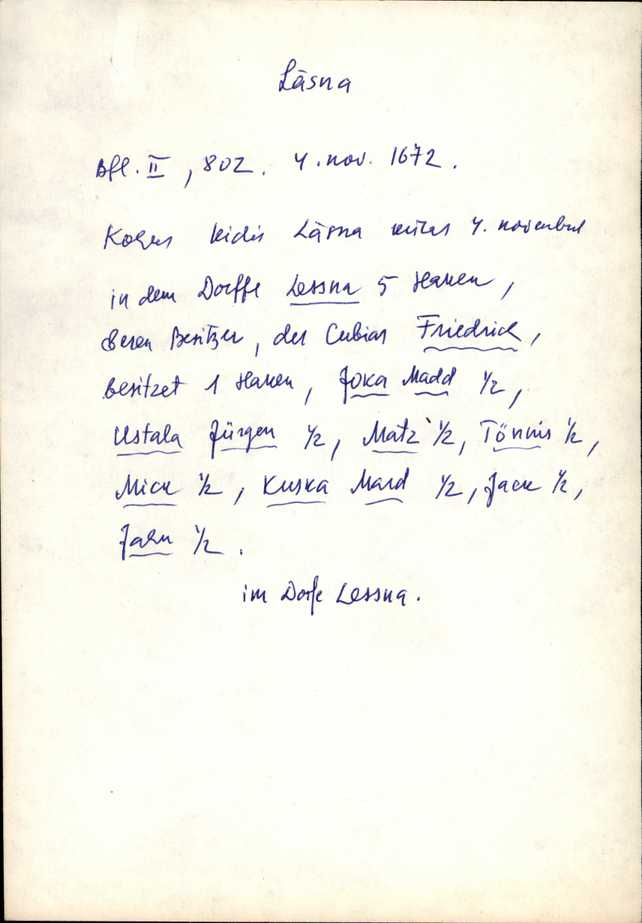 Läsna
Bfl. II, 802. 4. nov. 1672.
Kolgas leidis Läsna 4. novembril
in dem Dorffe Lessna 5 Haken,
deren Besitzer, der Cubias Friedrich,
besitzet 1 Haken, Joka Madd 1/2,
Ustala Jürgen 1/2, Matz 1/2, Tönnis 1/2,
Mick 1/2, Kuska Mard 1/2, Jack 1/2,
Jahn 1/2.
im Dorfe Lessna.